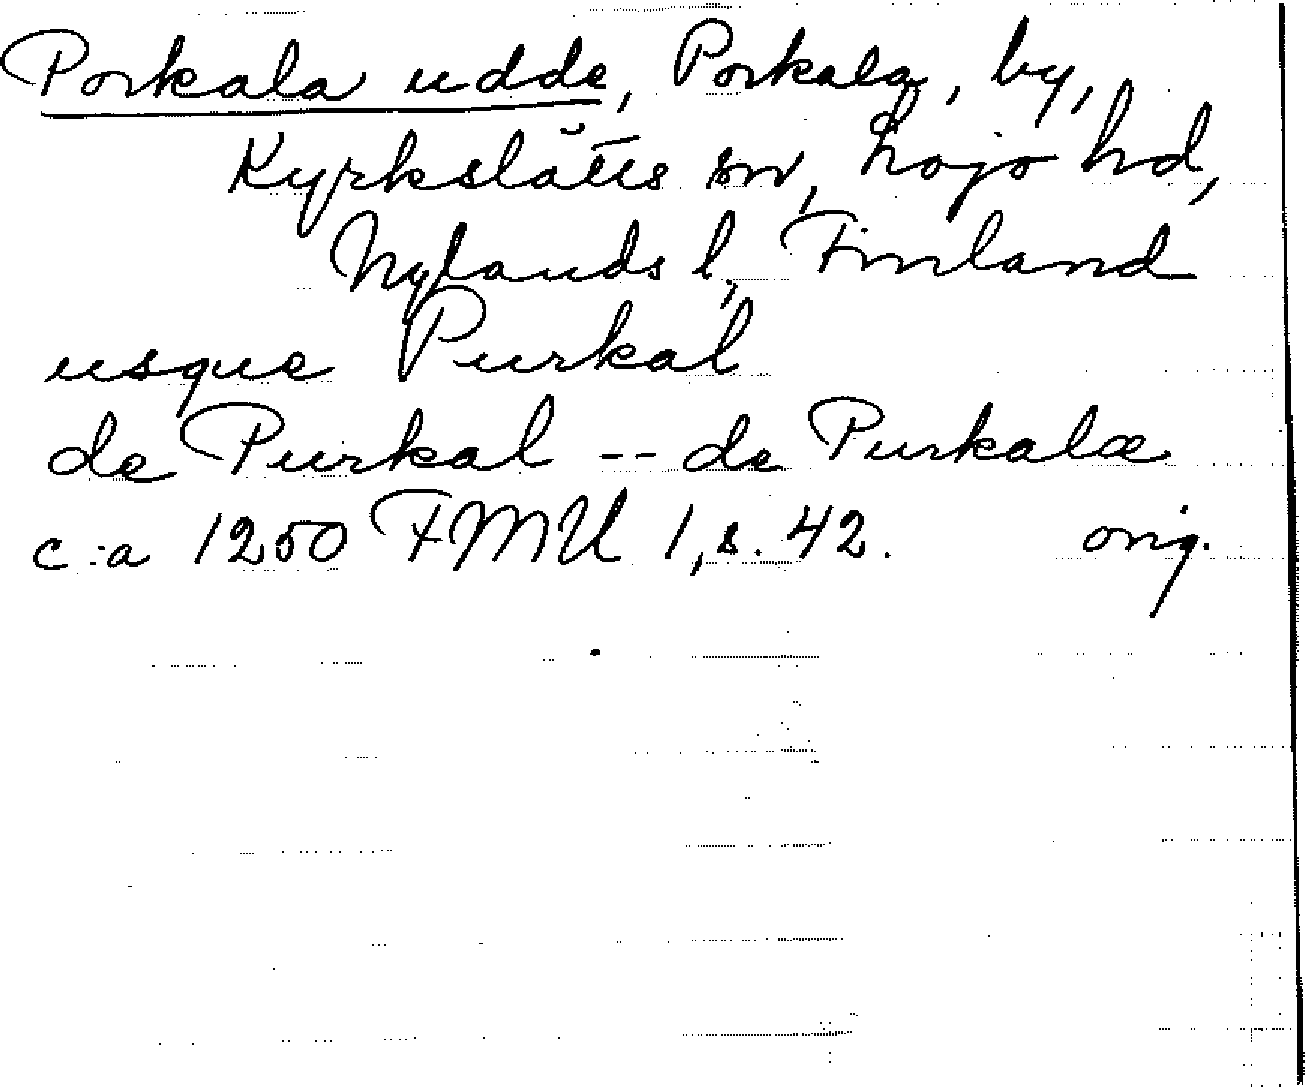 Porkala udde, Porkala, by,
Kyrkslätts sn, Lojo hd,
Nylands l, Finland
usque Purkal
de Purkal -- de Purkalæ
c:a 1250 FMU 1, s. 42. orig.